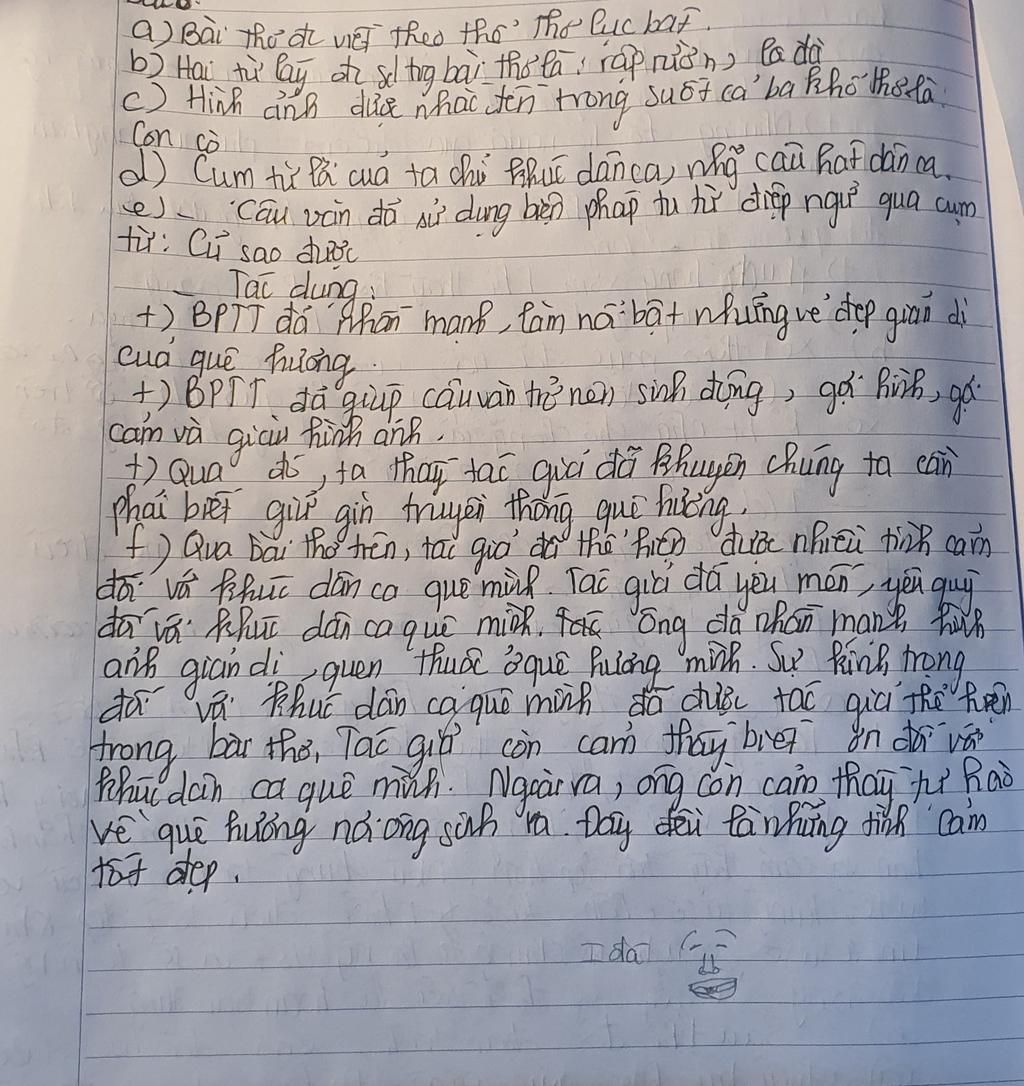 a) Bài thơ đc viết theo thể thơ lục bát.
b) Hai từ láy đc sd trg bài thơ là: rập rờn, la đà
c) Hình ảnh được nhắc tên trong suốt cả ba khổ thơ là:
Con cò
d) Cụm từ lời của ta chỉ khúc dân ca, nhg~ câu hát dân ca.
e) - Câu văn đã sử dụng biện pháp tu từ điệp ngữ qua cụm
từ: Cứ sao được
- Tác dụng:
+) BPTT đã nhấn mạnh, làm nổi bật những vẻ đẹp giản dị
của quê hương.
+) BPTT đã giúp câu văn trở nên sinh động, gợi hình, gợi
cảm và giàu hình ảnh.
+) Qua đó, ta thấy tác giả đã khuyên chúng ta cần
phải biết giữ gìn truyền thống quê hương.
f) Qua bài thơ trên, tác giả đã thể hiện được nhiều tình cảm
đối với khúc dân ca quê mình. Tác giả đã yêu mến, yêu quý
đối với khúc dân ca quê mình. Ông đã nhấn mạnh hình
ảnh giản dị, quen thuộc ở quê hương mình. Sự kính trọng
đối với khúc dân ca quê mình đã được tác giả thể hiện
trong bài thơ. Tác giả còn cảm thấy biết ơn đối với
khúc dân ca quê mình. Ngoài ra, ông còn cảm thấy tự hào
về quê hương nơi ông sinh ra. Đây đều là những tình cảm
tốt đẹp.